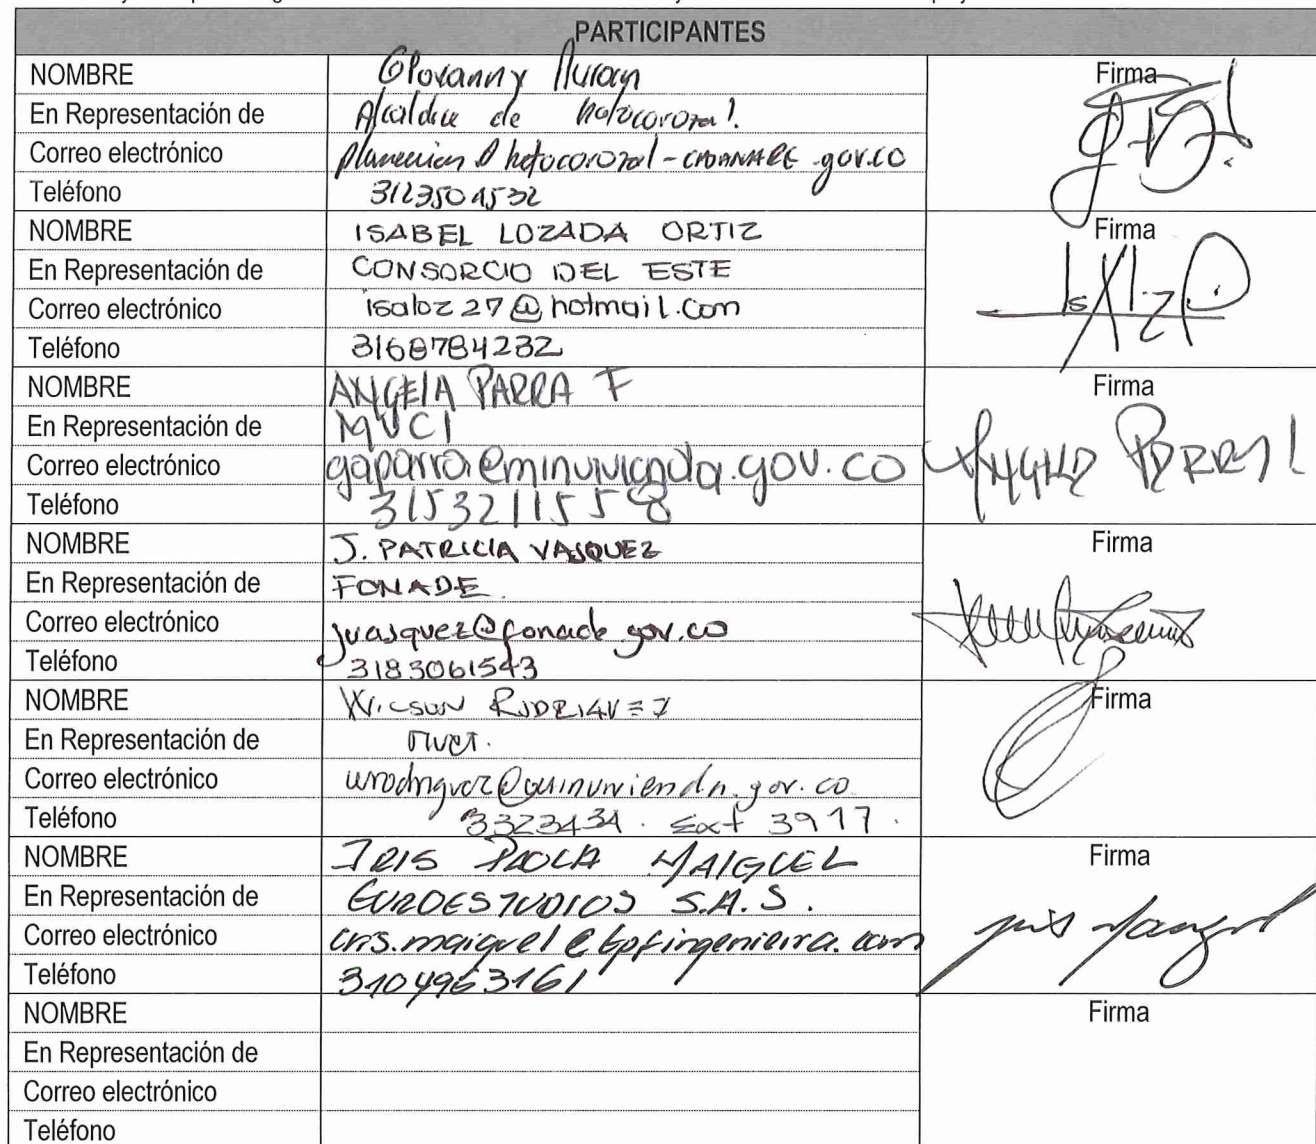 PARTICIPANTES
NOMBRE Giovanny Duran Firma
En Representación de Alcaldia de hatocorozal.
Correo electrónico planeacion@hatocorozal-CASANARE.gov.co
Teléfono 3123504532
NOMBRE ISABEL LOZADA ORTIZ Firma
En Representación de CONSORCIO DEL ESTE
Correo electrónico isaloz27@hotmail.com
Teléfono 3168784232
NOMBRE ANGELA PARRA F Firma
En Representación de MVCT
Correo electrónico gaparra@minvivienda.gov.co
Teléfono 3153211558
NOMBRE J. PATRICIA VASQUEZ Firma
En Representación de FONADE
Correo electrónico jvasquez@fonade.gov.co
Teléfono 3183061543
NOMBRE WILSON RODRIGUEZ Firma
En Representación de MVCT.
Correo electrónico wrodriguez@minvivienda.gov.co
Teléfono 3323434. Ext 3917.
NOMBRE IRIS PAOLA MAIGUEL Firma
En Representación de EUROESTUDIOS S.A.S.
Correo electrónico iris.maiguel@tpfingenieira.com
Teléfono 3104963161
NOMBRE Firma
En Representación de
Correo electrónico
Teléfono